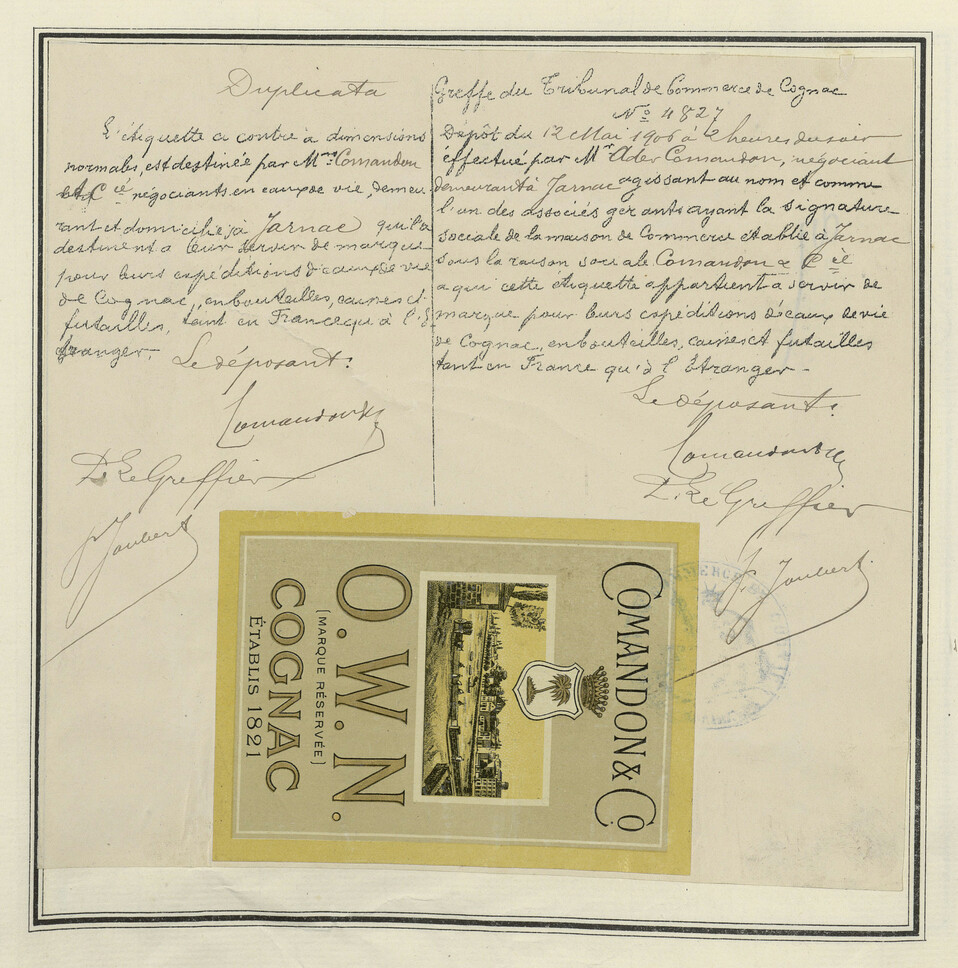 Duplicata
L'étiquette ci contre à dimensions
normales, est destinée par Mrs Comandon
et Cie négociants en eaux de vie, demeu-
rant et domiciliés à Jarnac qui la
destinent à leur servir de marque
pour leurs expéditions d'eaux de vie
de Cognac, en bouteilles, caisses et
futailles, tant en France qu'à l'É
tranger.
Le déposant:
Comandon & Co
Le Greffier
Joubert
Greffe du Tribunal de Commerce de Cognac
No 4827
Dépôt du 12 Mai 1906 à 2 heures du soir
effectué par Mr Ader Comandon, négociant
demeurant à Jarnac agissant au nom et comme
l'un des associés gérants ayant la signature
sociale de la maison de Commerce établie à Jarnac
sous la raison sociale Comandon & Cie
a qui cette étiquette appartient à servir de
marque pour leurs expéditions d'eaux de vie
de Cognac, en bouteilles, caisses et futailles
tant en France qu'à l'Étranger -
Le déposant:
Comandon & Co
Le Greffier
Joubert
COMANDON & CO
O.W.N.
(MARQUE RÉSERVÉE)
COGNAC
ÉTABLIS 1821